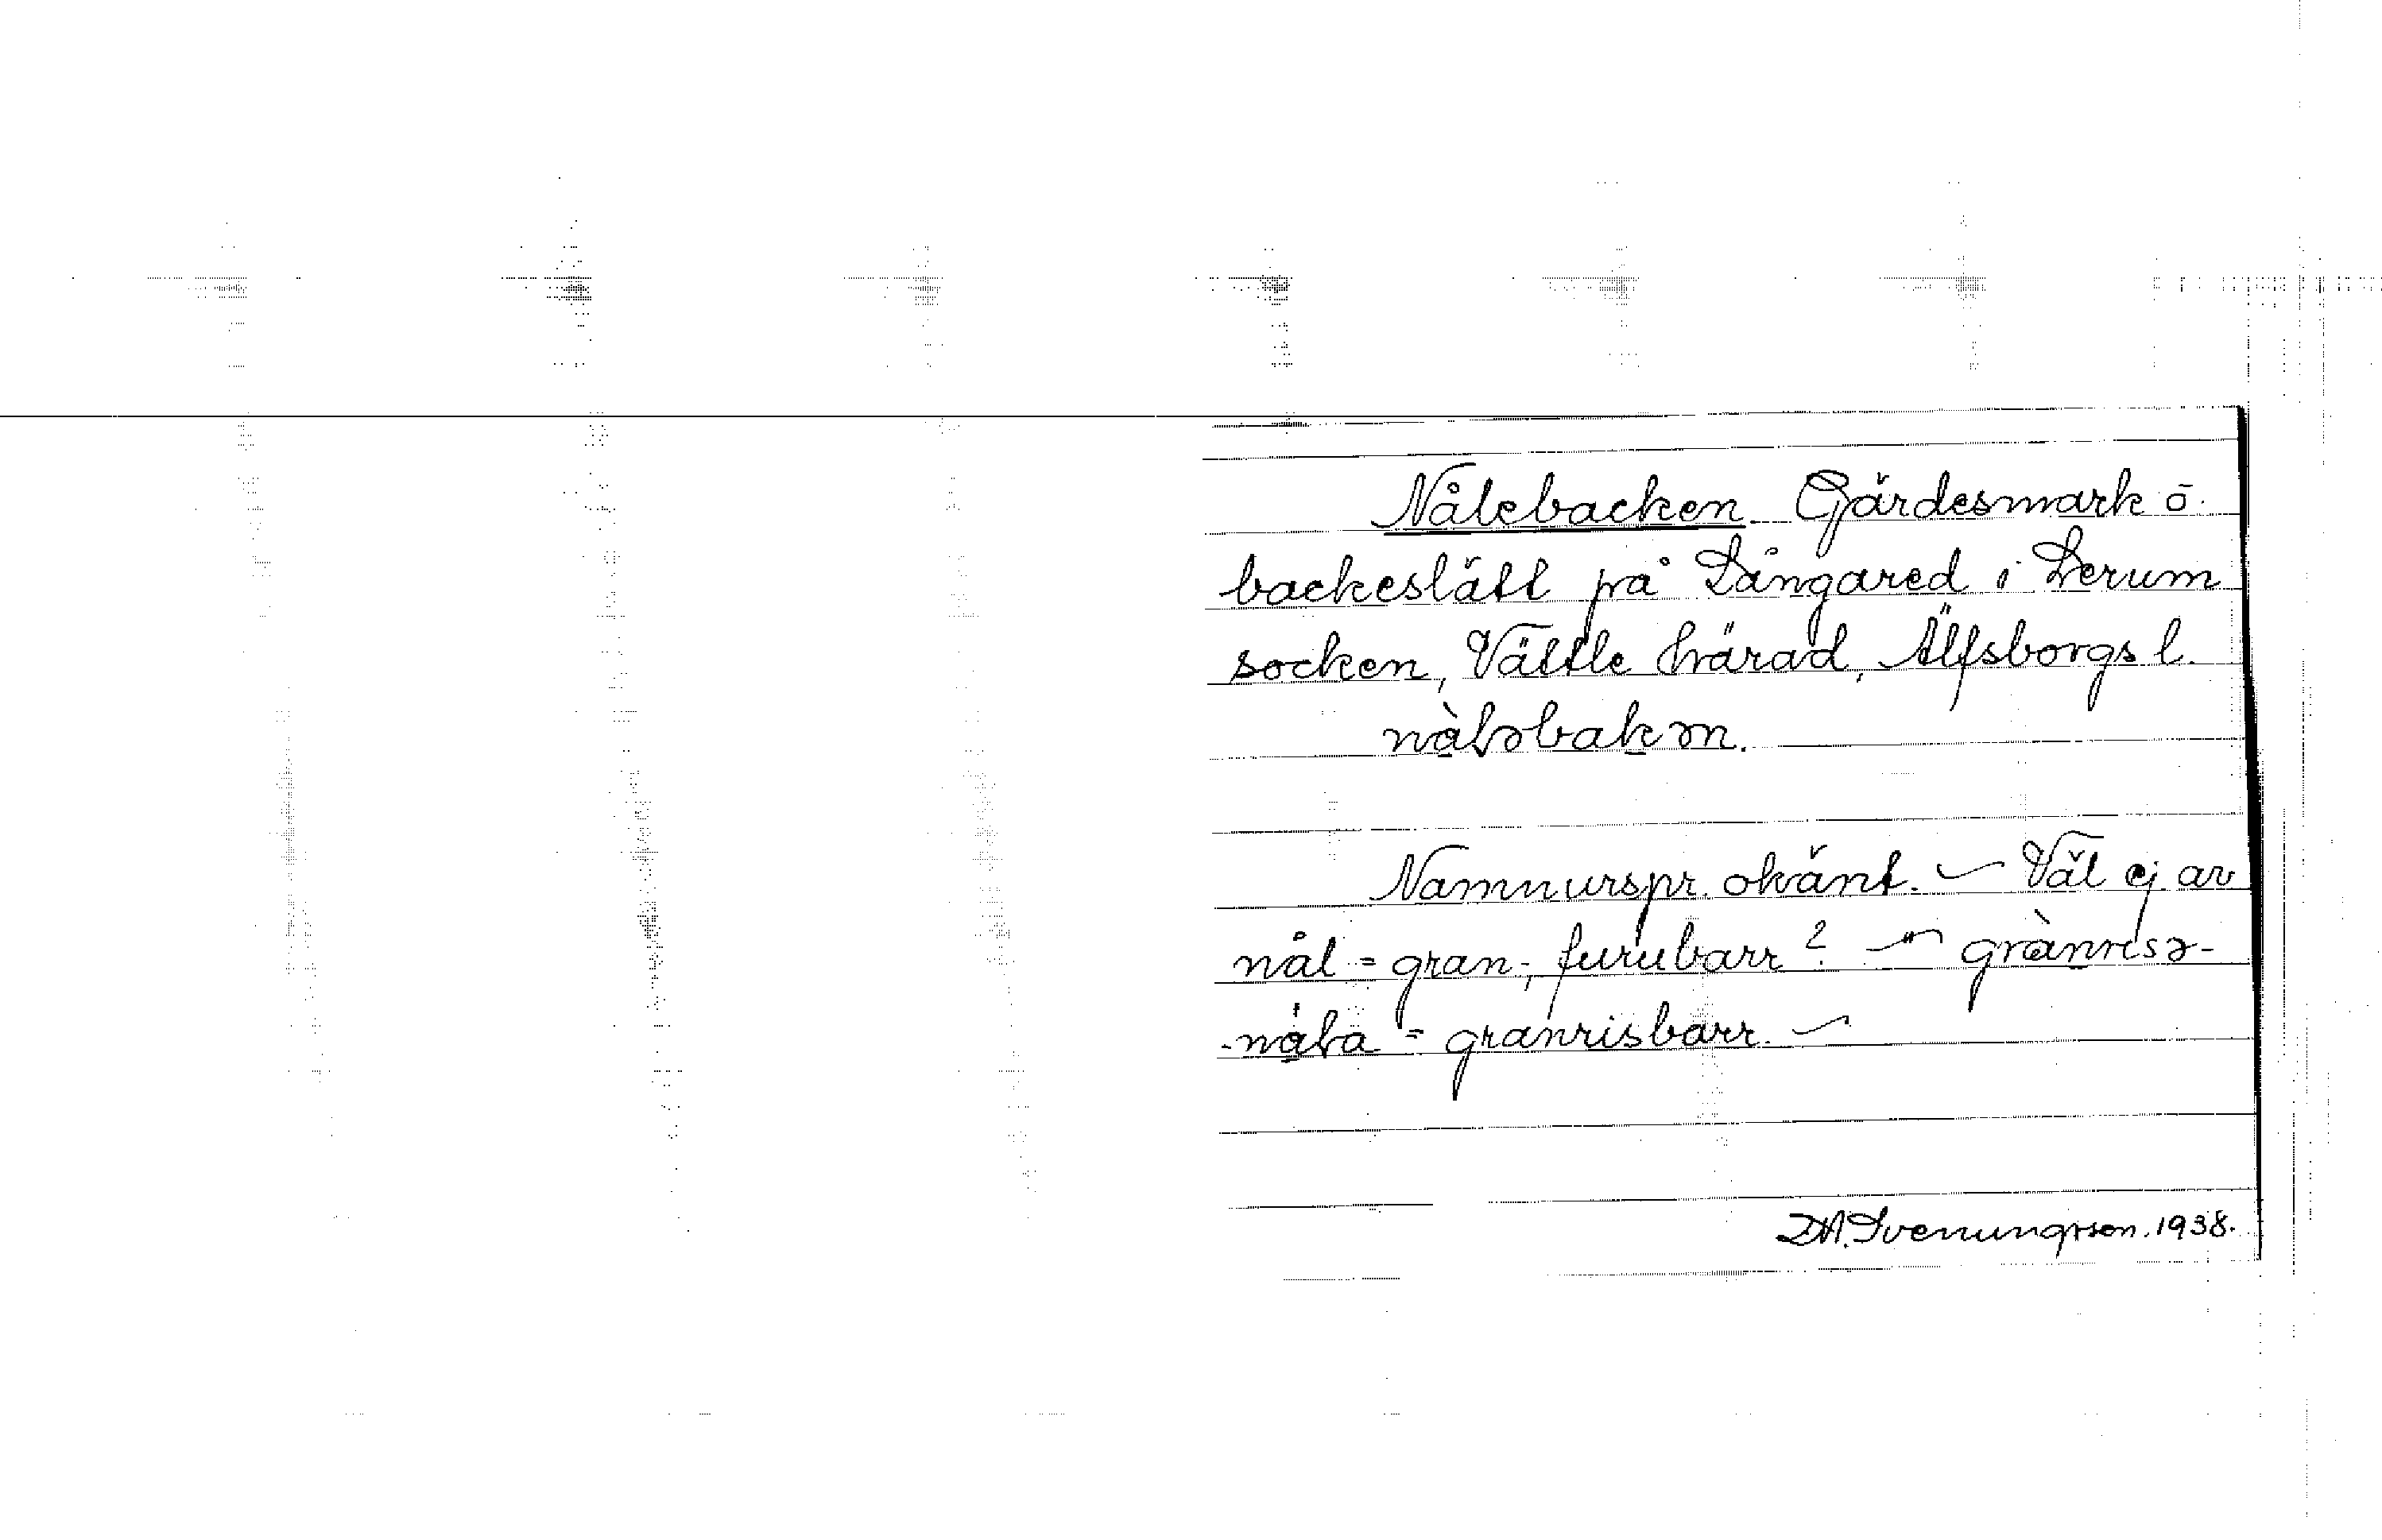 Nålebacken. Gärdesmark ō.
backeslätt på Långared i Lerum
socken, Vättle härad, Älfsborgs l.
nàləbakən.
Namnurspr. okänt. – Väl ej av
nål = gran-, furubarr? – " grànrisə-
-nåla = granrisbarr. –
D.A. Svenungsson. 1938.